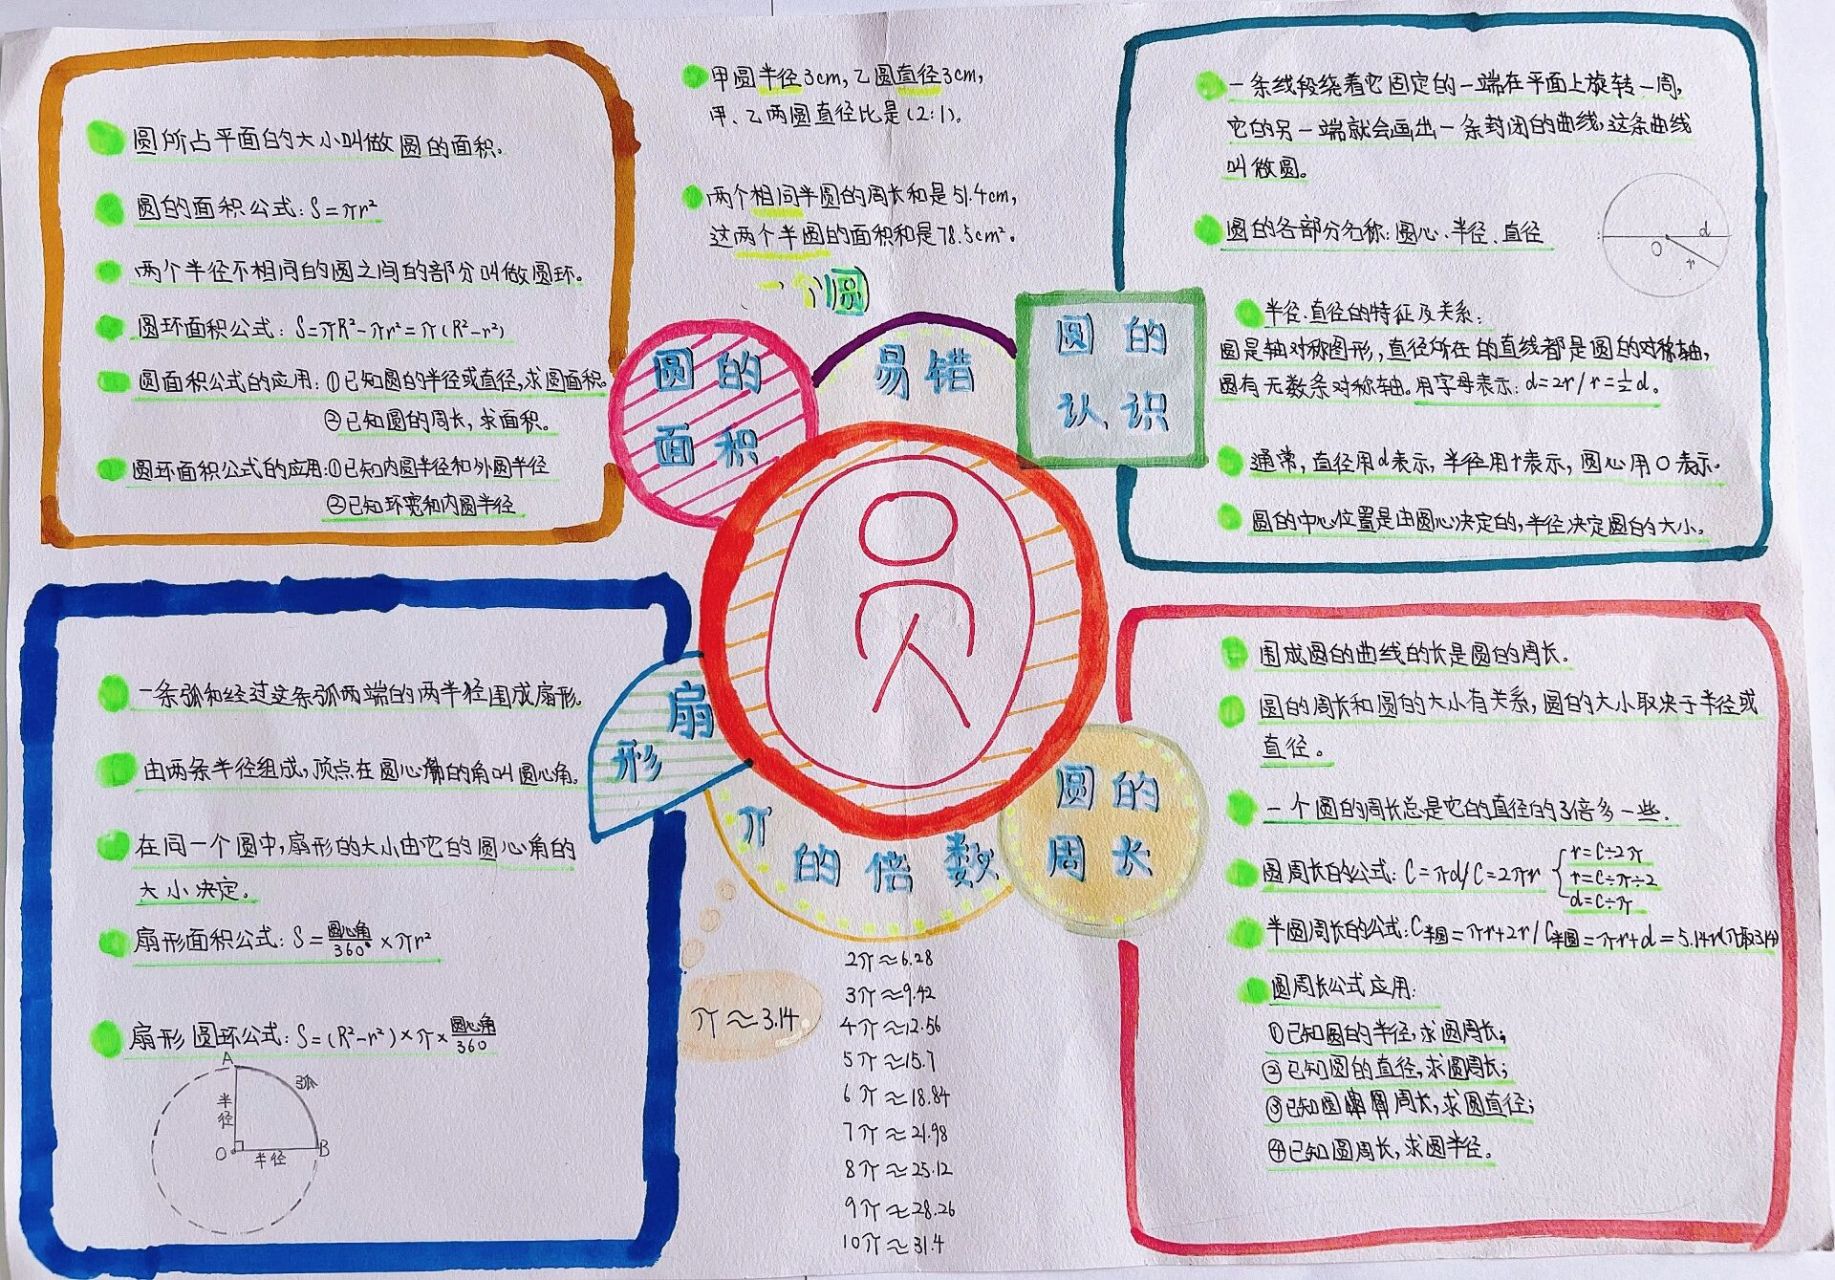 圆所占平面的大小叫做圆的面积。
圆的面积公式:S=πr²
两个半径不相同的圆之间的部分叫做圆环。
圆环面积公式:S=πR²-πr²=π(R²-r²)
圆面积公式的应用:①已知圆的半径或直径,求圆面积。
②已知圆的周长,求面积。
圆环面积公式的应用:①已知内圆半径和外圆半径
②已知环宽和内圆半径
圆的
面积
甲圆半径3cm,乙圆直径3cm,
甲、乙两圆直径比是(2:1)。
两个相同半圆的周长和是51.4cm,
这两个半圆的面积和是78.5cm²。
一个圆
易错
圆的
认识
一条线段绕着它固定的一端在平面上旋转一周,
它的另一端就会画出一条封闭的曲线,这条曲线
叫做圆。
圆的各部分名称:圆心、半径、直径
d
O
r
半径、直径的特征及关系:
圆是轴对称图形,直径所在的直线都是圆的对称轴,
圆有无数条对称轴。用字母表示:d=2r/r=½d。
通常,直径用d表示,半径用r表示,圆心用O表示.
圆的中心位置是由圆心决定的,半径决定圆的大小。
圆
扇
形
一条弧和经过这条弧两端的两半径围成扇形。
由两条半径组成,顶点在圆心的角叫圆心角。
在同一个圆中,扇形的大小由它的圆心角的
大小决定。
扇形面积公式:S=圆心角/360°×πr²
扇形圆环公式:S=(R²-r²)×π×圆心角/360
A
弧
半
径
O
半径
B
π的倍数
π≈3.14
2π≈6.28
3π≈9.42
4π≈12.56
5π≈15.7
6π≈18.84
7π≈21.98
8π≈25.12
9π≈28.26
10π≈31.4
圆的
周长
围成圆的曲线的长是圆的周长.
圆的周长和圆的大小有关系,圆的大小取决于半径或
直径。
一个圆的周长总是它的直径的3倍多一些.
圆周长的公式:C=πd/C=2πr
r=C÷2π
r=C÷π÷2
d=C÷π
半圆周长的公式:C半圆=πr+2r/C半圆=πr+d=5.14r(π取3.14)
圆周长公式应用:
①已知圆的半径,求圆周长;
②已知圆的直径,求圆周长;
③已知圆周长,求圆直径;
④已知圆周长,求圆半径。